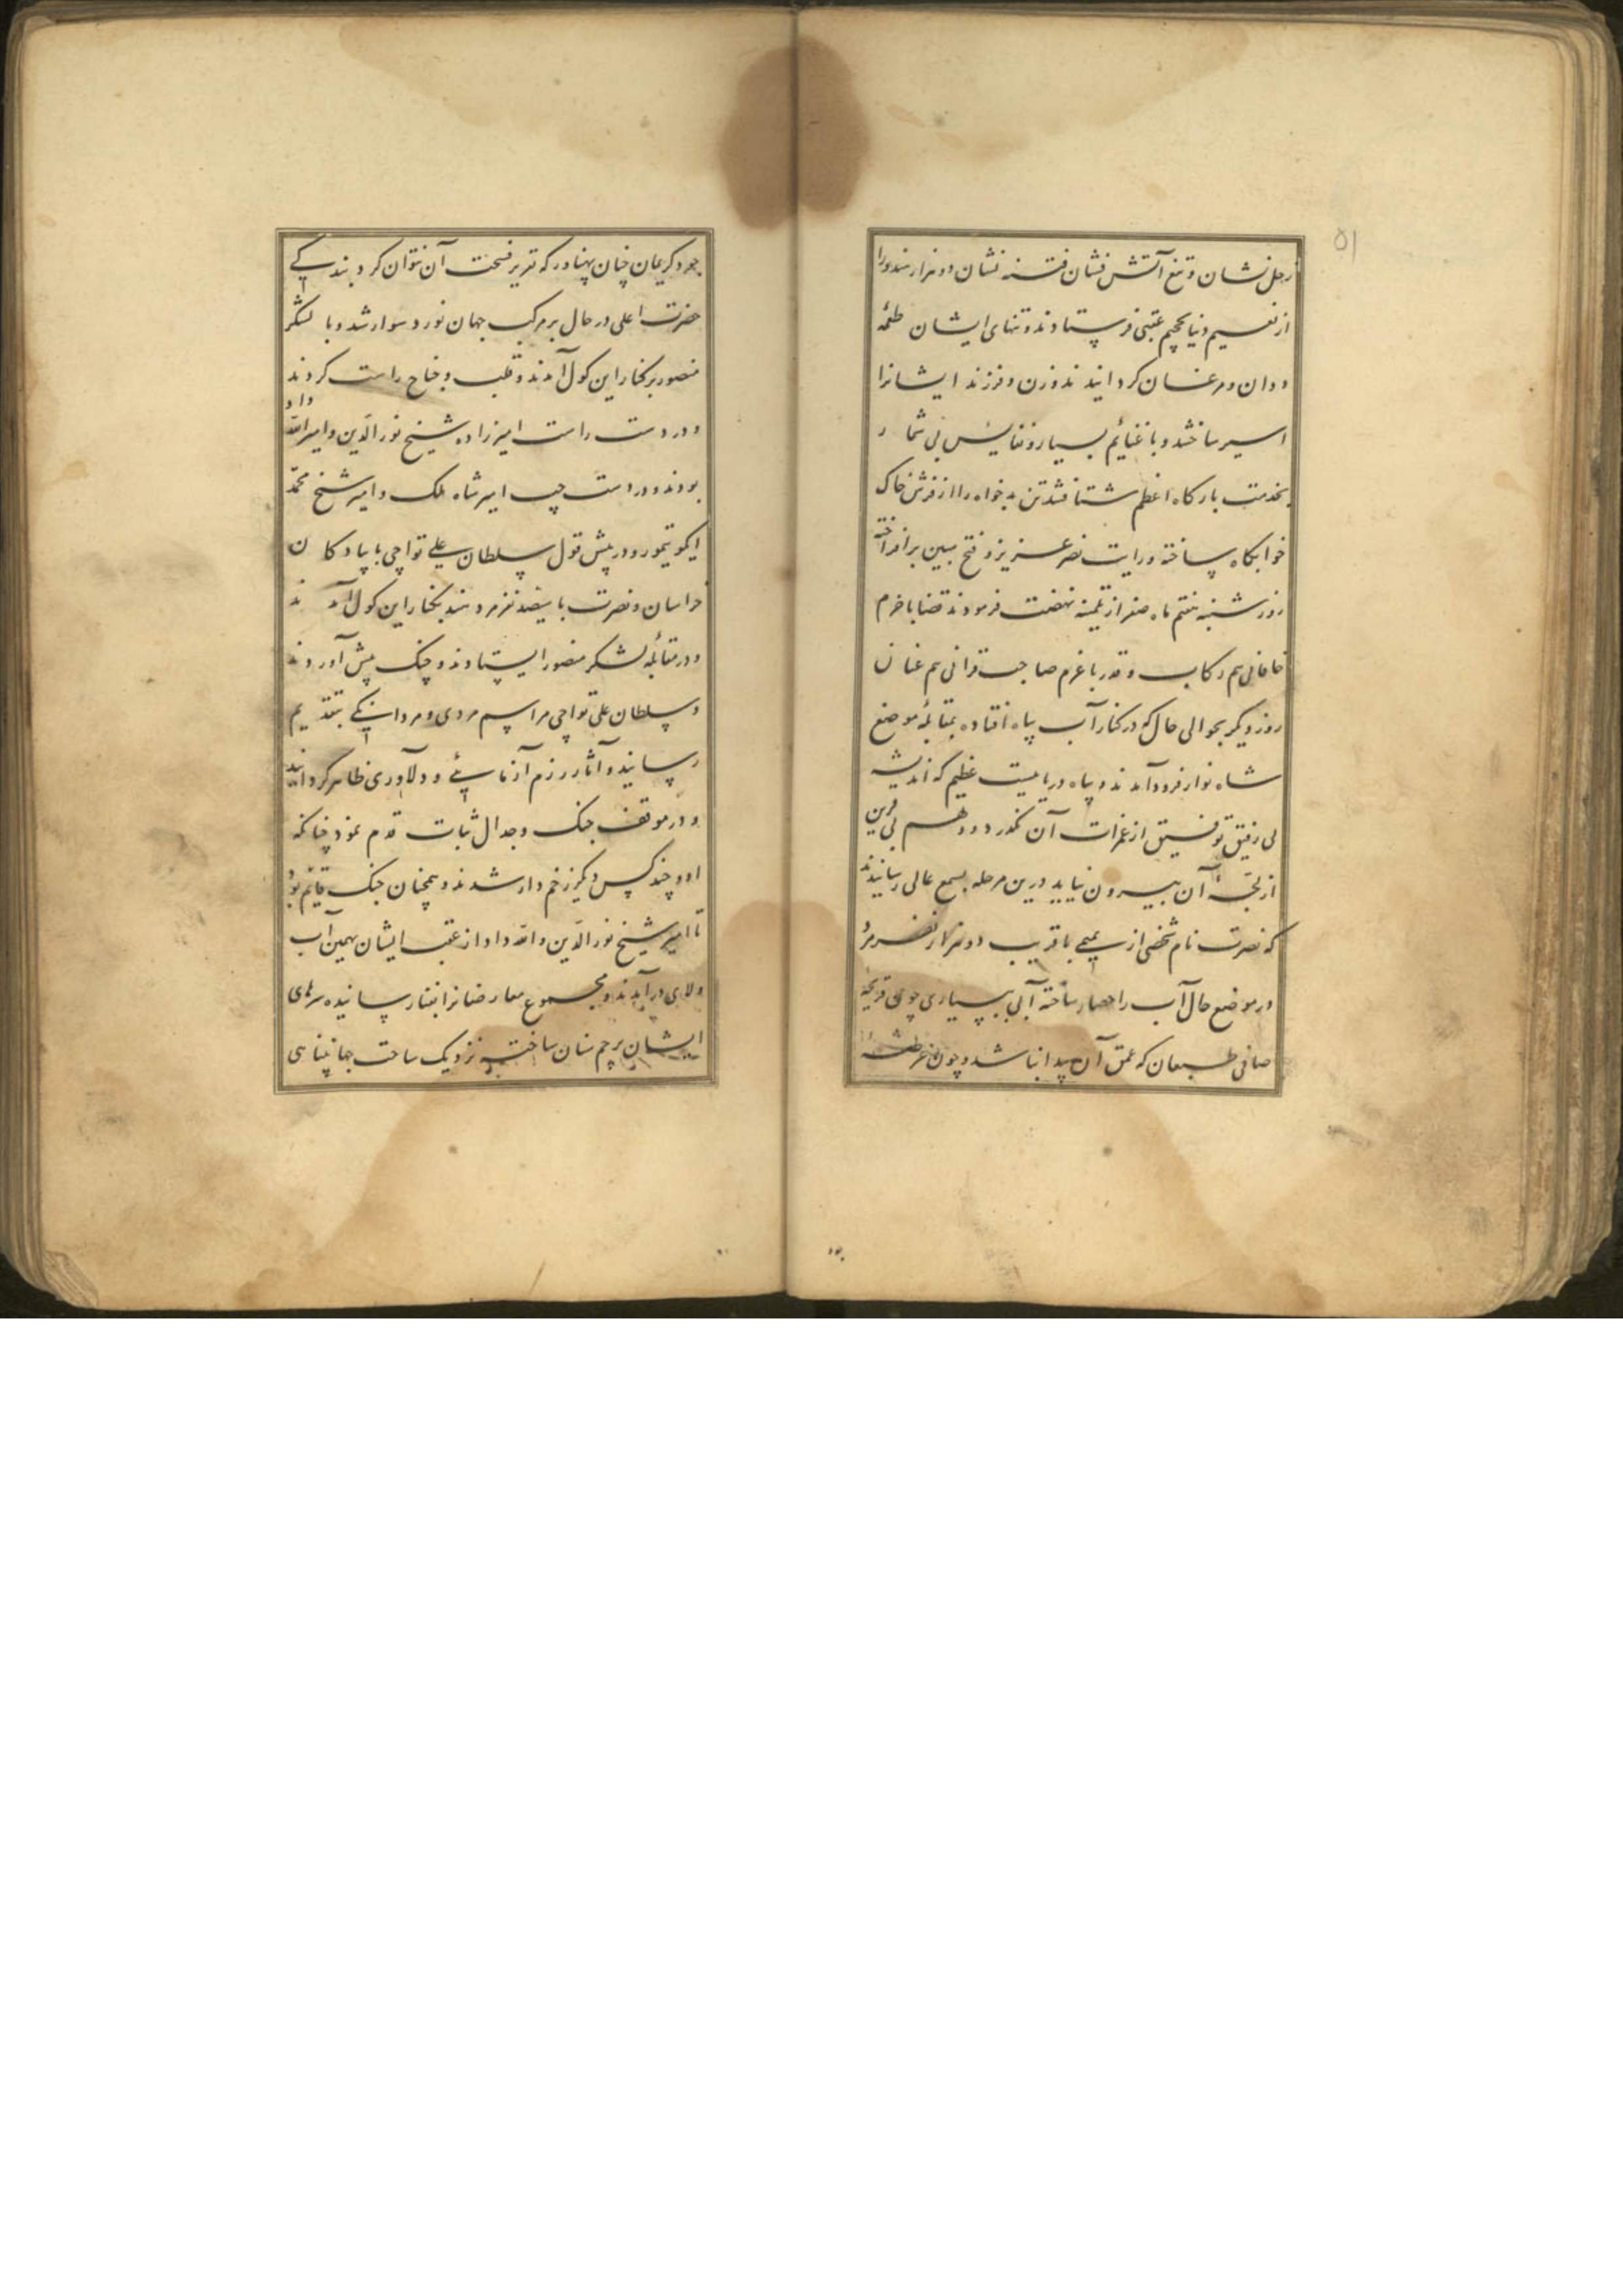 ۵۱
زحل نشان و تیغ آتش فشان فتنه نشان دو هزار هندو را
از نعیم دنیا بجحیم عقبی فرستادند و تنهای ایشان طعمهٔ
ددان و مرغان کردانیدند و زن و فرزند ایشانرا
اسیر ساختند و با غنائم بسیار و نفایس بی شمار
بخدمت بارکاه اعظم شتافتند تن بدخواه را از فرش خاک
خوابکاه ساخته و رایت نصر عزیز و فتح مبین برافراخته
روز شنبه هفتم ماه صفر از تلمبنه نهضت فرمودند قضا با خرم
خاقانی هم رکاب و قدر با عزم صاحب قرانی هم عنان
روز دیکر بحوالی جال که در کنار آب بیاه افتاده بمقابلهٔ موضع
شاه نواز فرود آمدند و بیاه دریائیست عظیم که اندیشه
بی رفیق توفیق از غمرات آن نکذرد و وهم بی قرین
از لجهٔ آن بیرون نیاید درین مرحله بسمع عالی رسانیدند
که نصرت نام شخصی از با قریب دو هزار نفر مرد
در موضع جال آب را حصار ساخته آبی ببسیاری چون قریحهٔ
صافی طبعان که عمق آن پیدا نباشد و چون عرصهٔ
جود کریمان چنان پهناور که تقریر فسحت آن نتوان کرد بندکی
حضرت اعلی در حال بر مرکب جهان نورد سوار شد و با لشکر
منصور بر کنار این کول آمدند و قلب و جناح راست کردند
و در دست راست امیرزاده شیخ نورالدین و امیر الله داد
بودند و در دست چپ امیر شاه ملک و امیر شیخ محمد
ایکو تیمور و در پیش قول سلطان علی تواچی با پیادکان
خراسان و نصرت با سیصد نفر مرد هند بکنار این کول آمدند
و در مقابلهٔ لشکر منصور ایستادند و جنک پیش آوردند
و سلطان علی تواچی مراسم مردی و مردانکی بتقدیم
رسانید و آثار رزم آزمائی و دلاوری ظاهر کردانید
و در موقف جنک و جدال ثبات قدم نمود چنانکه
او و چند کس دیکر زخم دار شدند و همچنان جنک قایم بود
تا امیر شیخ نورالدین و الله داد از عقب ایشان بهمین آب
و لای در آمدند و مجموع معارضانرا بفنا رسانیده سرهای
ایشان پرچم سنان ساخته نزدیک ساحت جهانپناهی